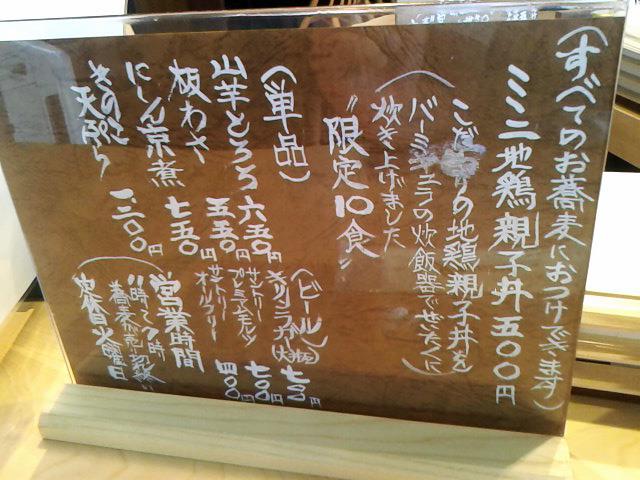 (すべてのお蕎麦におつけできます)
ミニ地鶏親子丼五〇〇円
こだわりの地鶏親子丼を
バーミキュラの炊飯器でぜいたくに
炊き上げました
"限定10食"
(単品)
山芋とろろ 六五〇円
板わさ 五五〇円
にしん京煮 七五〇
きのこ天ぷら 一、二〇〇円
(ビール)
キリンラガー(大瓶) 七〇〇円
サントリープレミアムモルツ 七〇〇円
サントリーオールフリー 四〇〇
営業時間
11時〜7時
定休日 火曜日